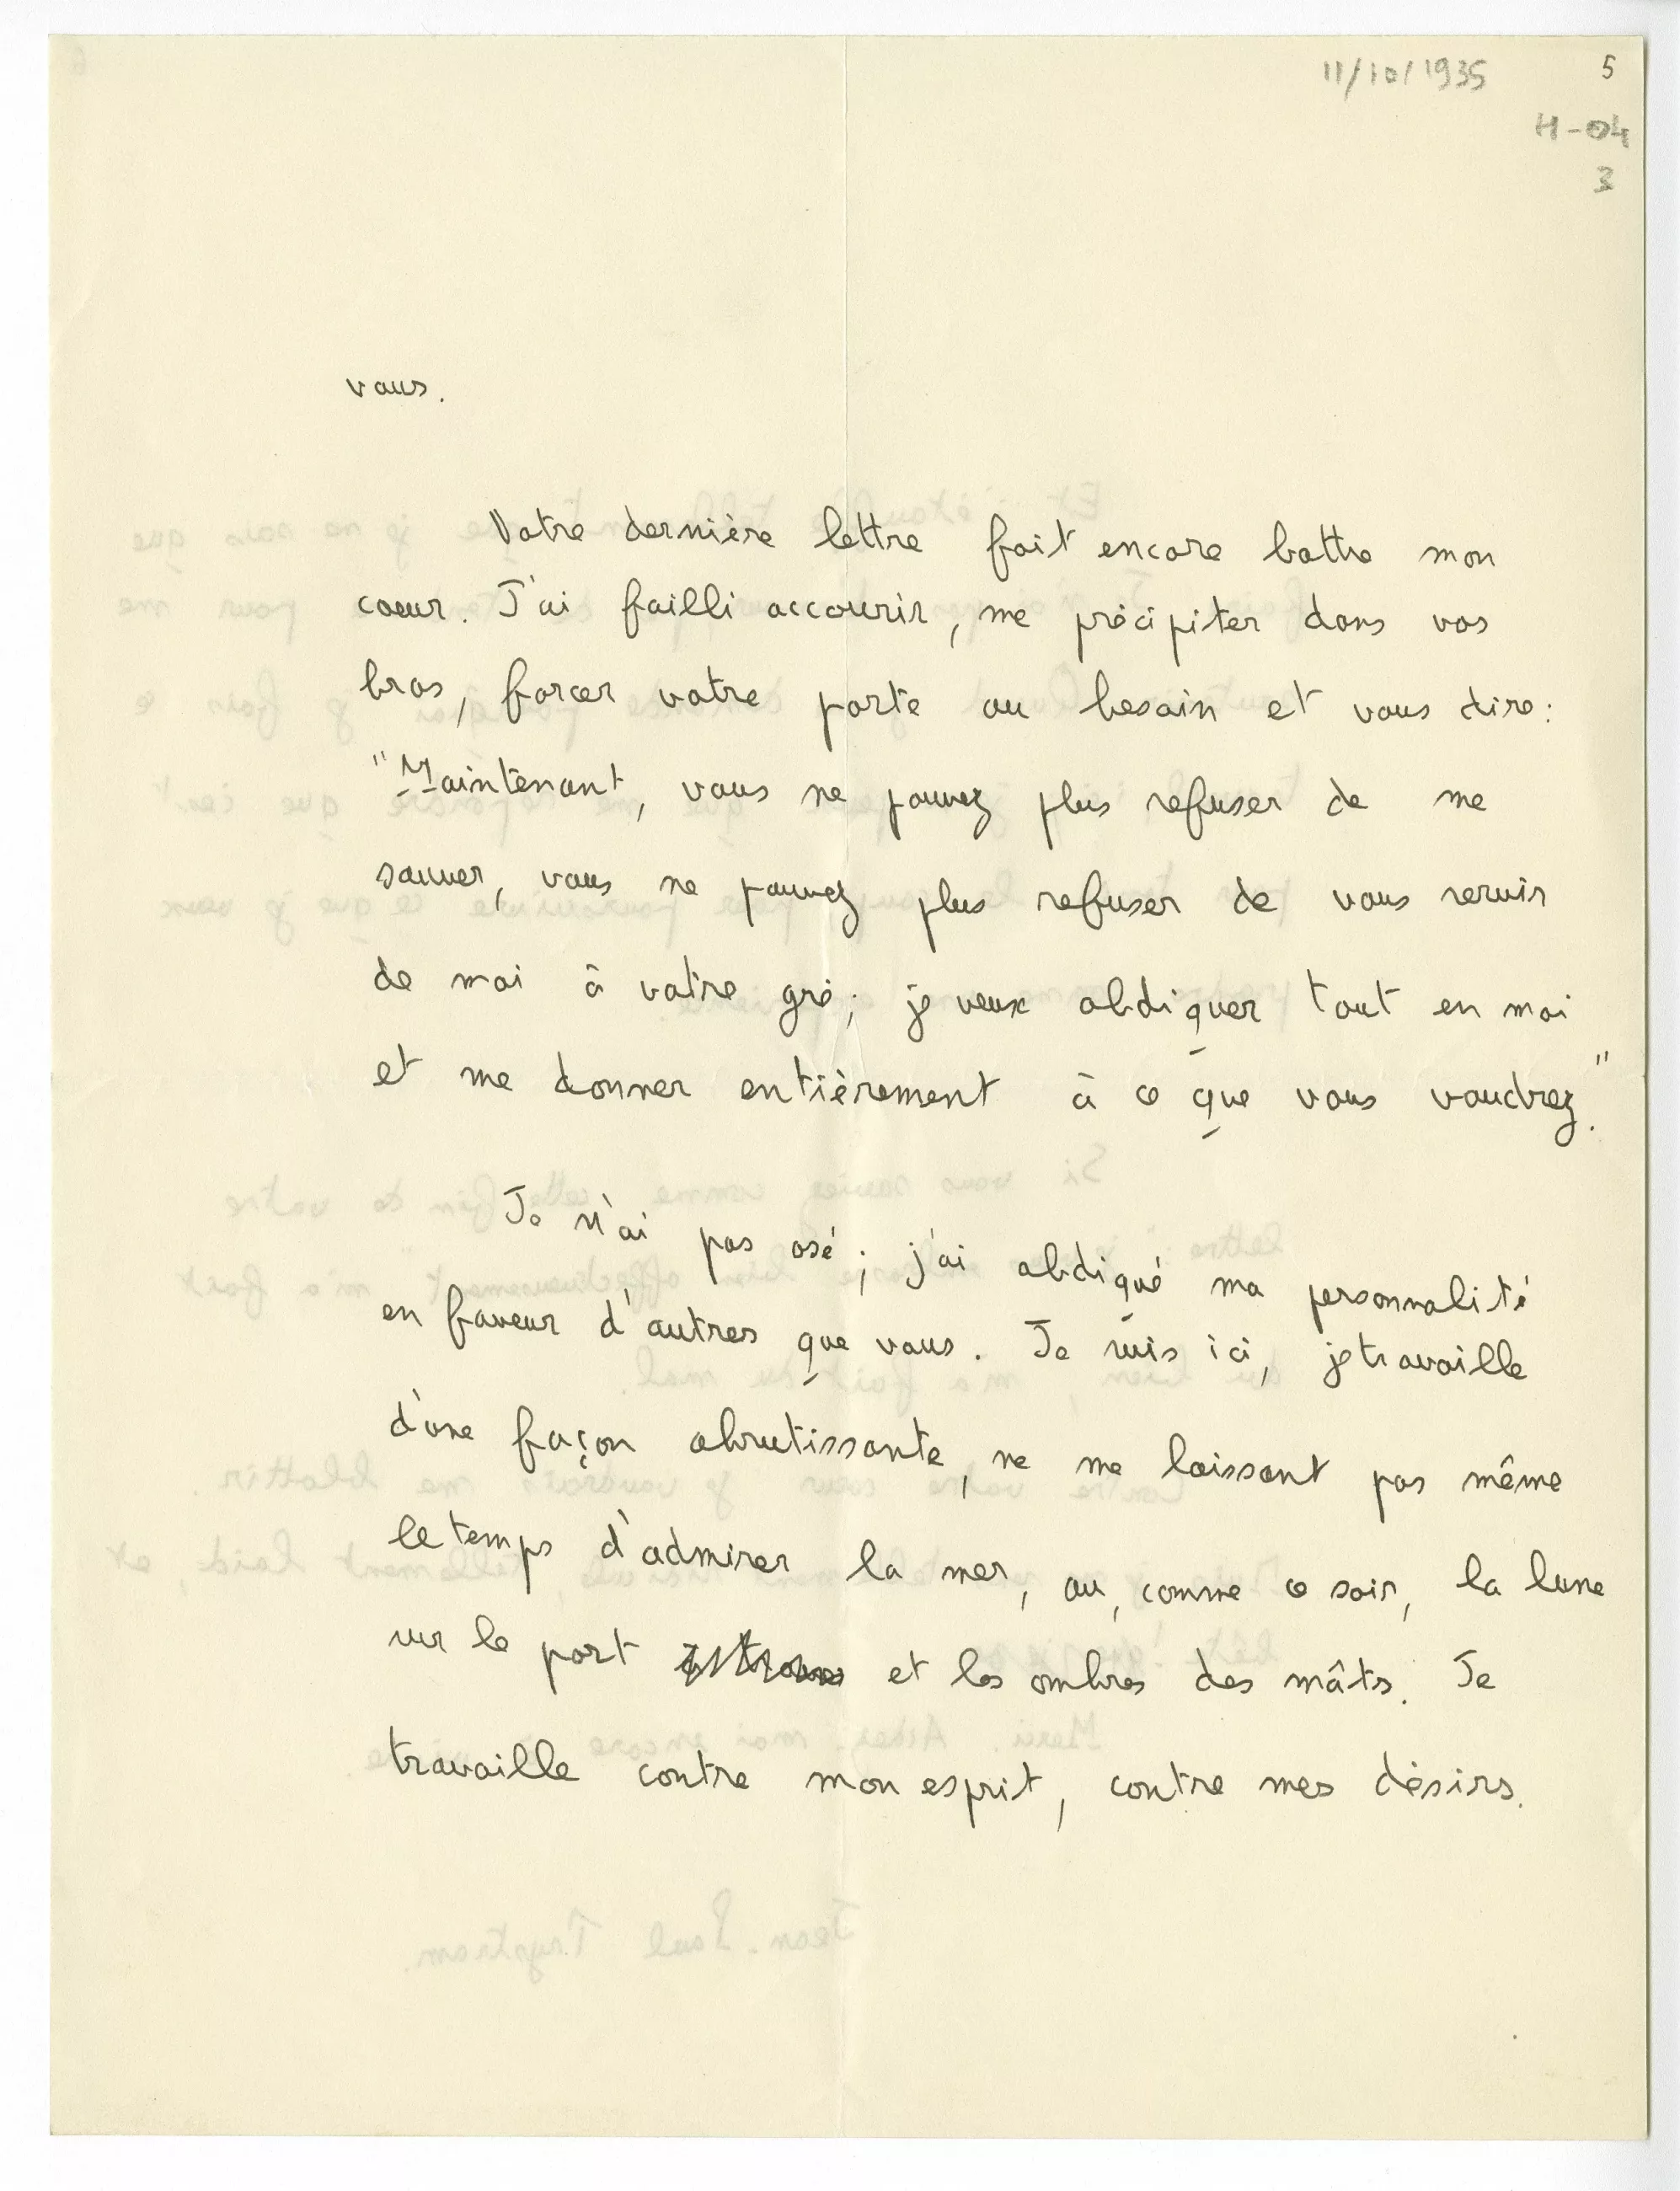 11/10/1935 5
H-04
3
vous.
Votre dernière lettre fait encore battre mon
coeur. J'ai failli accourir, me précipiter dans vos
bras, forcer votre porte au besoin et vous dire:
"Maintenant, vous ne pouvez plus refuser de me
sauver, vous ne pouvez plus refuser de vous servir
de moi à votre gré; je veux abdiquer tout en moi
et me donner entièrement à ce que vous voudrez."
Je n'ai pas osé; j'ai abdiqué ma personnalité
en faveur d'autres que vous. Je suis ici, je travaille
d'une façon abrutissante, ne me laissant pas même
le temps d'admirer la mer, ou, comme ce soir, la lune
sur le port et les ombres des mâts. Je
travaille contre mon esprit, contre mes désirs.